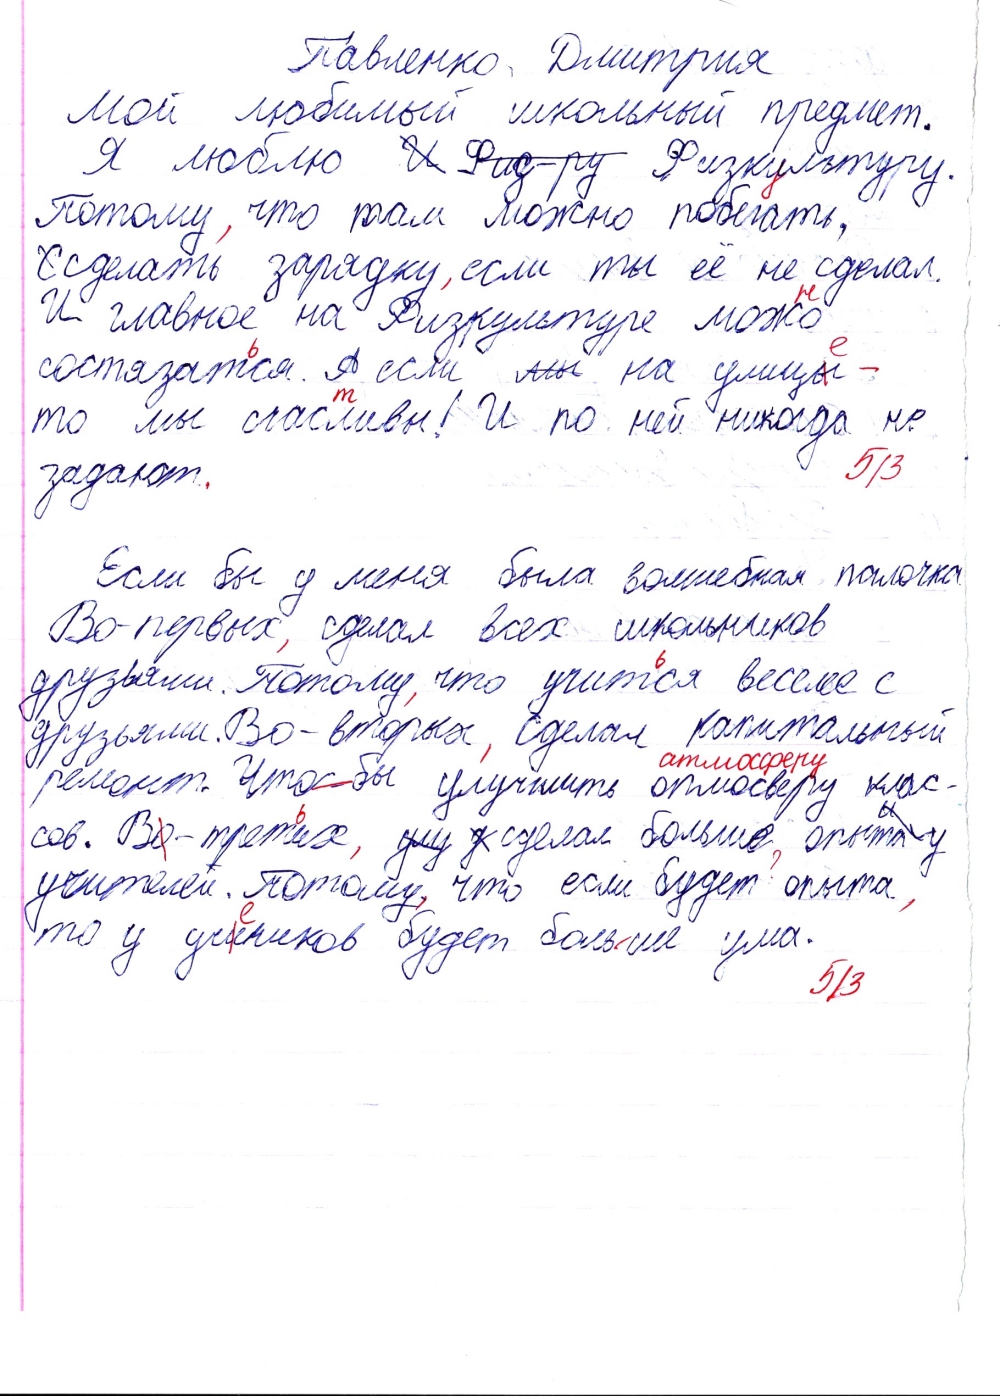 Павленко Дмитрия
Мой любимый школьный предмет.
Я люблю И Физ-ру Физкультуру.
Потому, что там можно побегать,
сделать зарядку, если ты её не сделал.
И главное на Физкультуре можо
н
состязатся. А если мы на улицы –
ь е
то мы счасливы! И по ней никогда не
т
задают.
5/3
Если бы у меня была волшебная палочка
Во-первых, сделал всех школьников
друзьями. Потому, что учится веселее с
ь
друзьями. Во-вторых, сделал капитальный
ремонт. Что-бы улучшить отмосверу клас-
атмосферу
сов. Во-третих, сделал больше, опыта у
ь
учителей. Потому, что если будет опыта,
?
то у учиников будет больше ума.
е
5/3